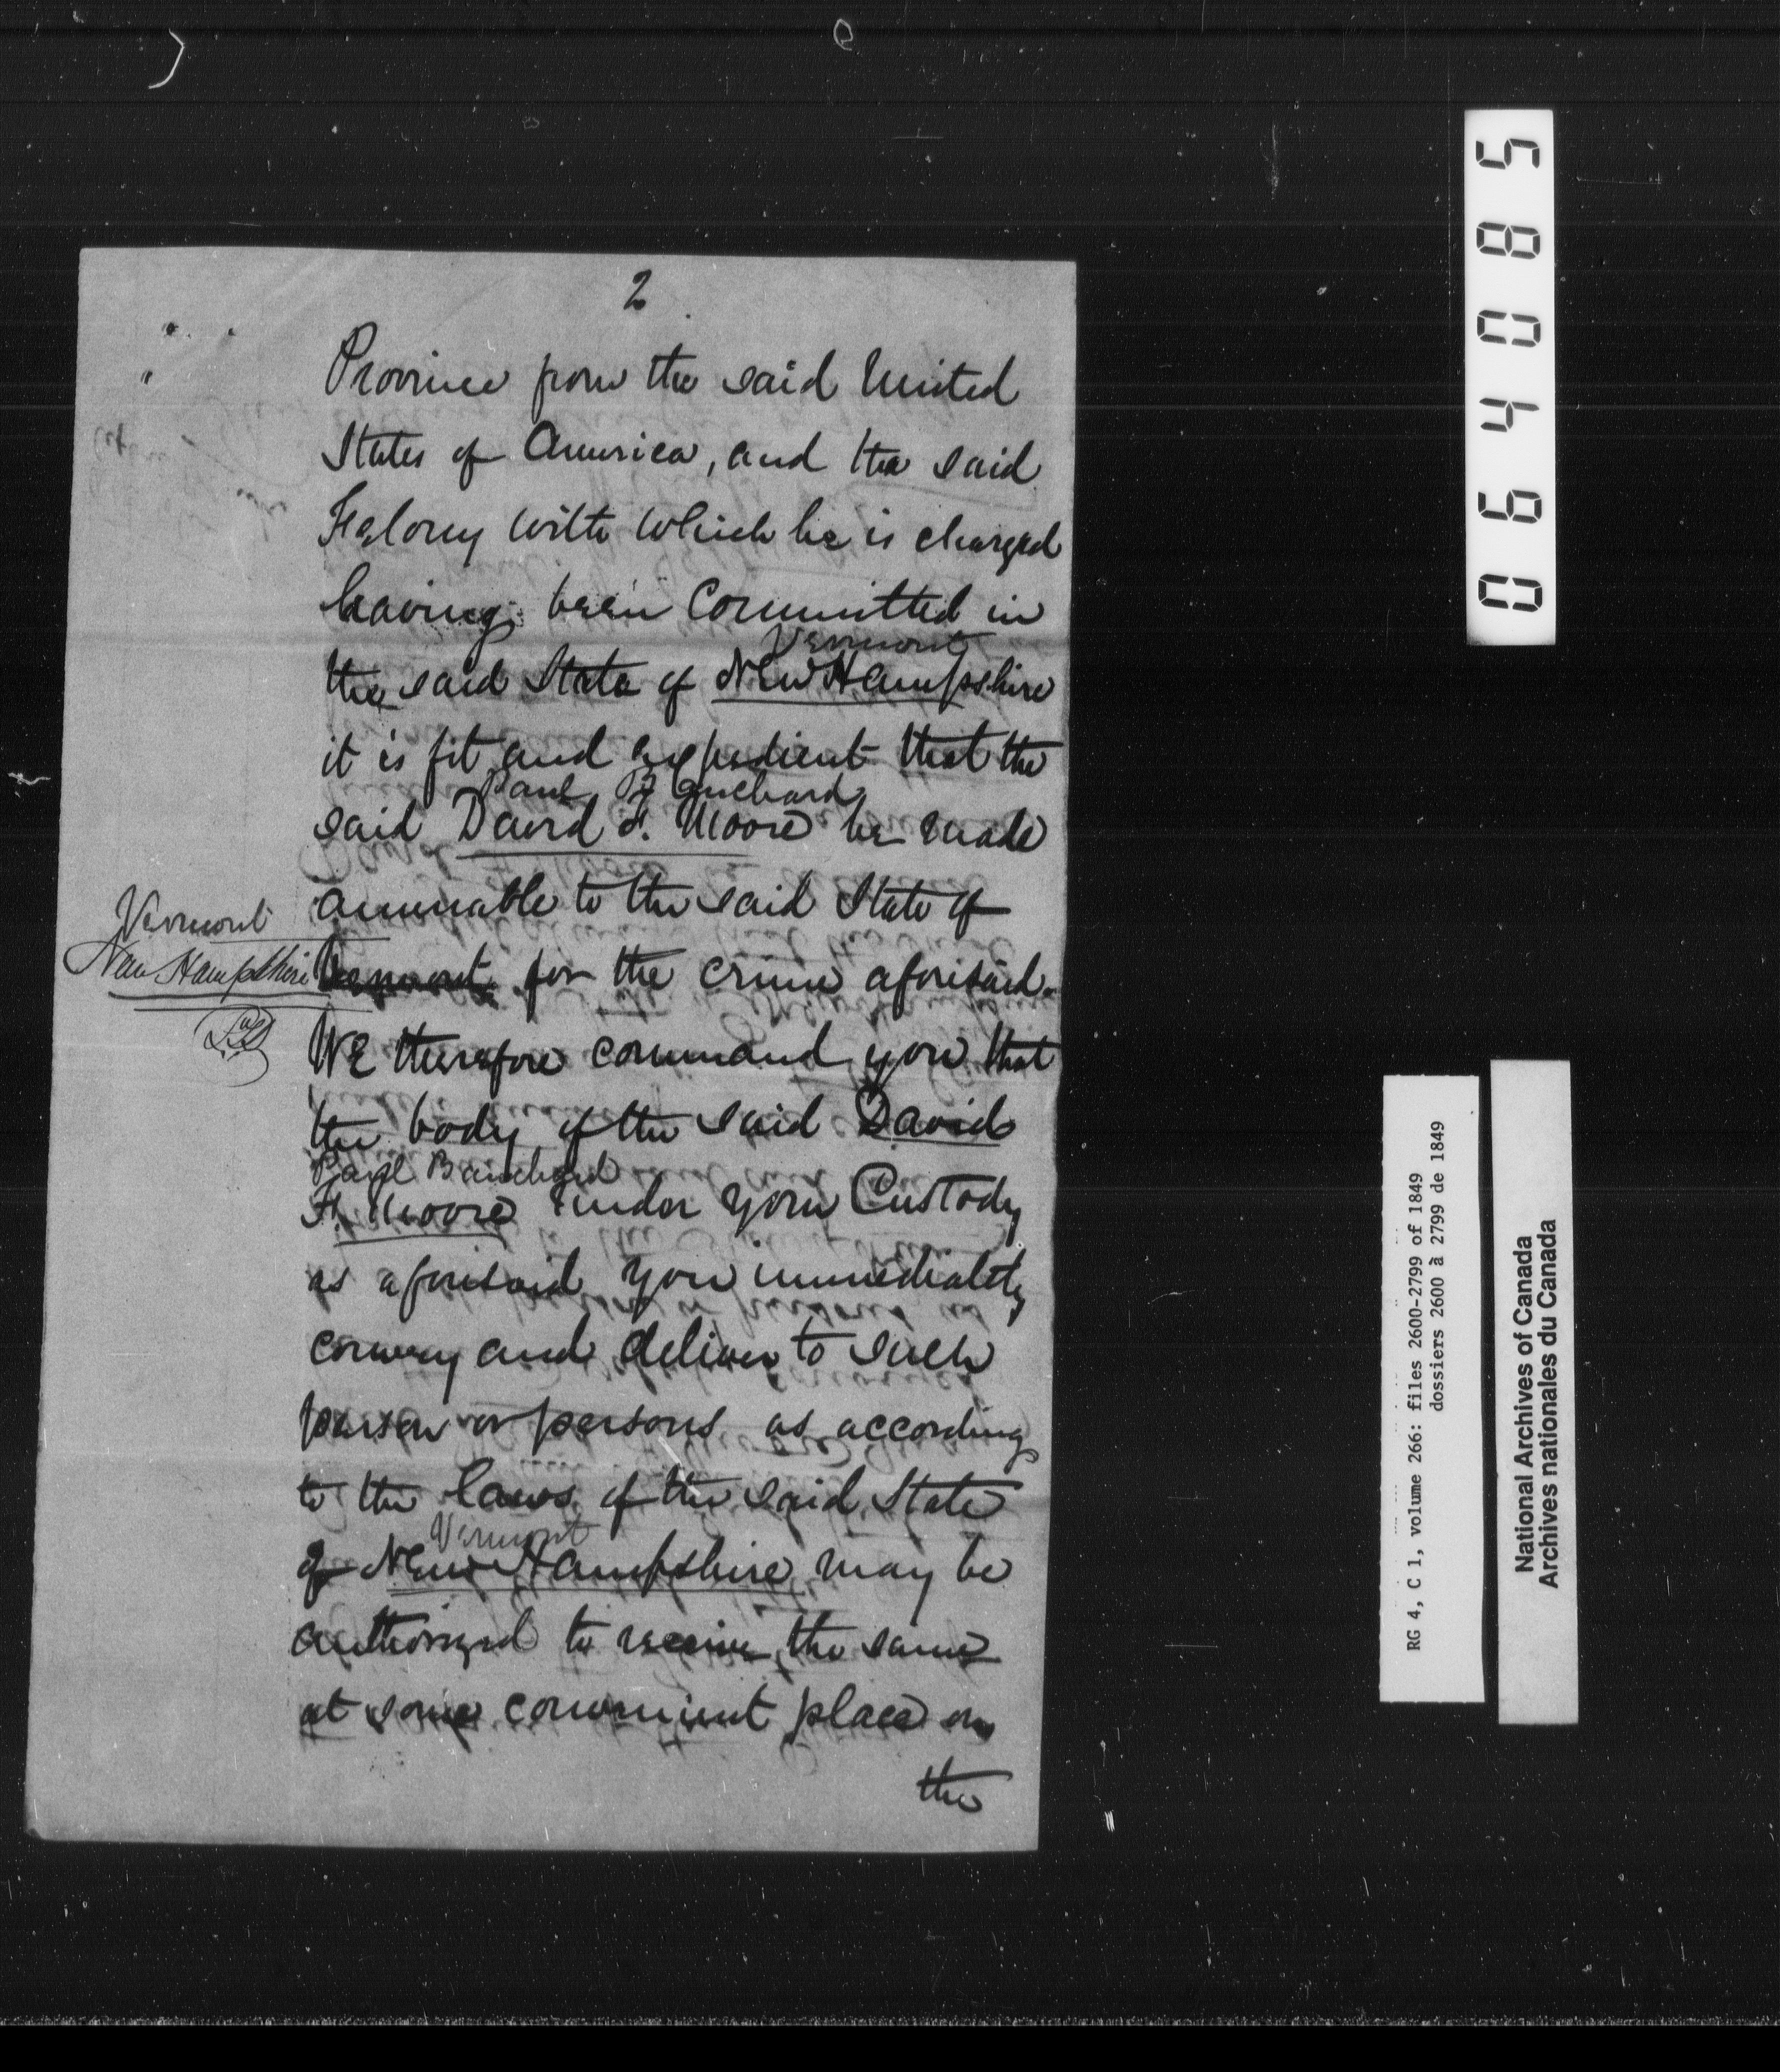 2
Province from the said United
States of America, and the said
Felony with which he is charged
having been Committed in
Vermont
the said State of New Hampshire
it is fit and expedient that the
Paul Blanchard
said David F. Moore be made
amenable to the said State of
Vermont
New Hampshire Vermont for the crime aforesaid.
We therefore command you that
the body of the said David
Paul Blanchard
F. Moore under your Custody
as aforesaid you immediately
convey and deliver to such
person or persons as according
to the laws of the said State
Vermont
of New Hampshire may be
authorized to receive the same
at some convenient place on
the
064085
RG 4, C 1, volume 266: files 2600-2799 of 1849
dossiers 2600 à 2799 de 1849
National Archives of Canada
Archives nationales du Canada